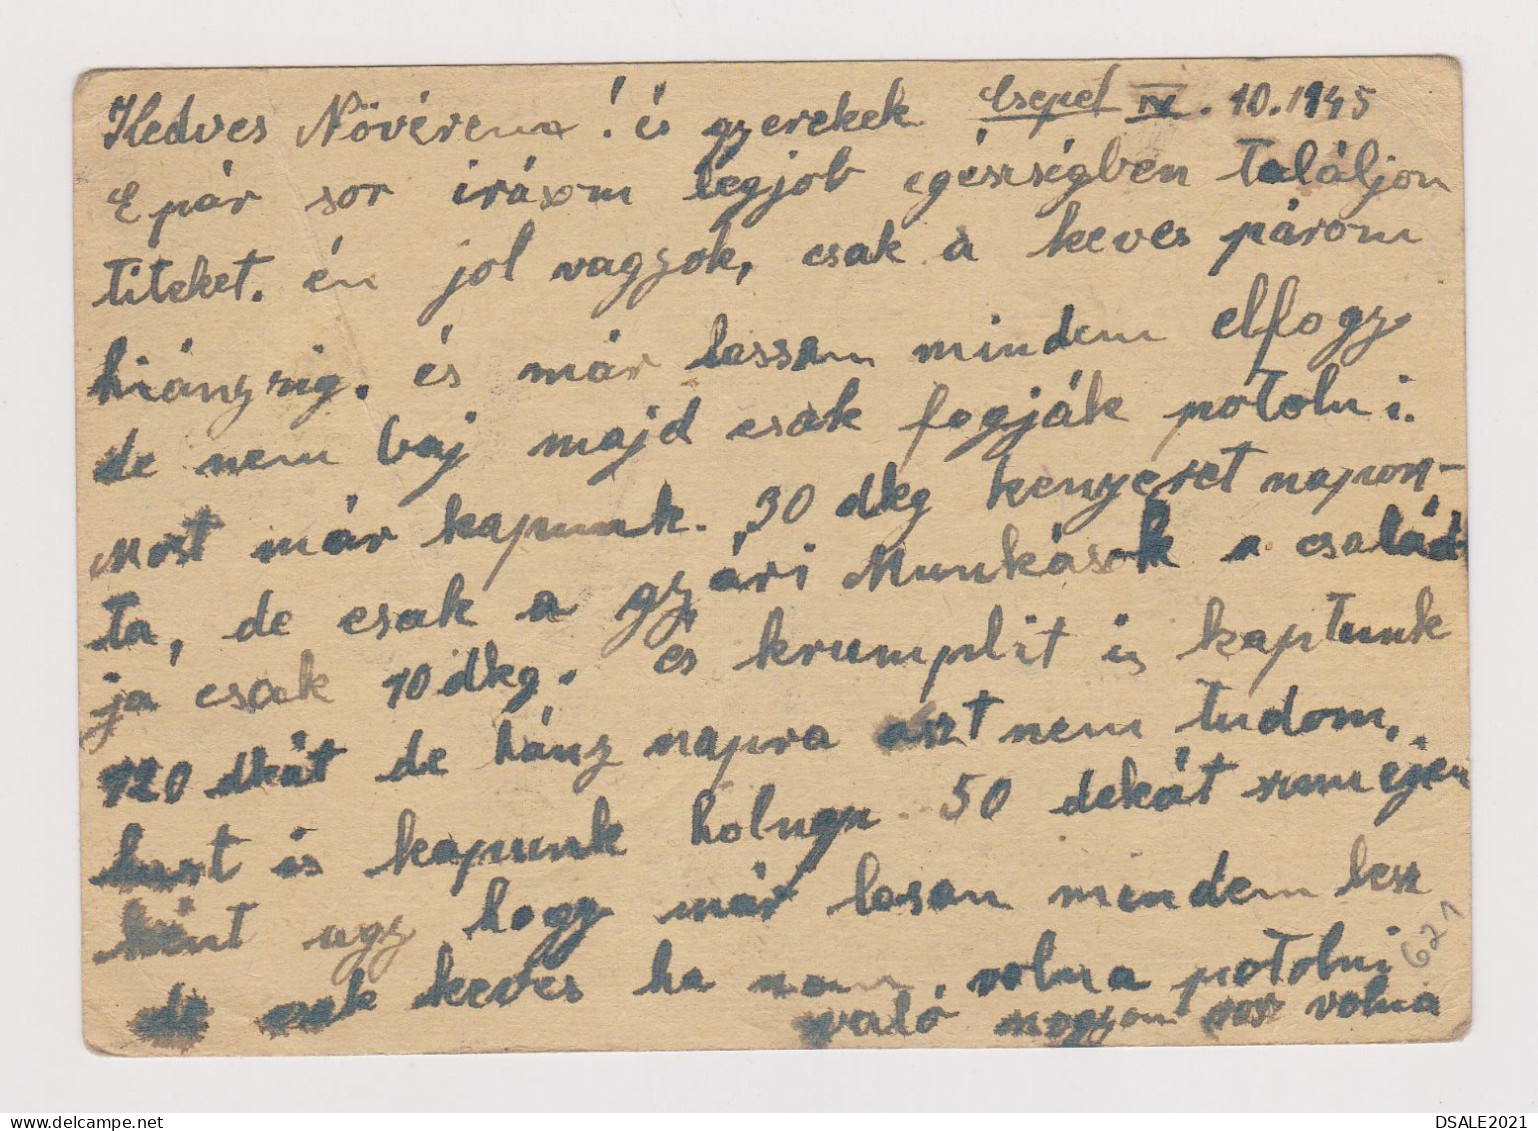 Kedves Növérem! és gzerekek Csepel IV. 10. 1945
E pár sor irásom legjob egészségben találjon
titeket. én jol vagzok, csak a keves párom
hiánzzig. és már lassan mindem elfogz
de nem baj majd csak fogják potolni.
Most már kapunk. 30 dkg kenyeret napon-
ta, de csak a gzári Munkások a család
ja csak 10 dkg. és krumplit is kaptunk
120 dkát de hánz napra aszt nem tudom.
hust is kapunk holnap 50 dekát
ként ugz hogz már lasan mindem lesz
de csak keves ha nem volna potolni
való nagzon ros volna
621
delcampe.net
DSALE2021